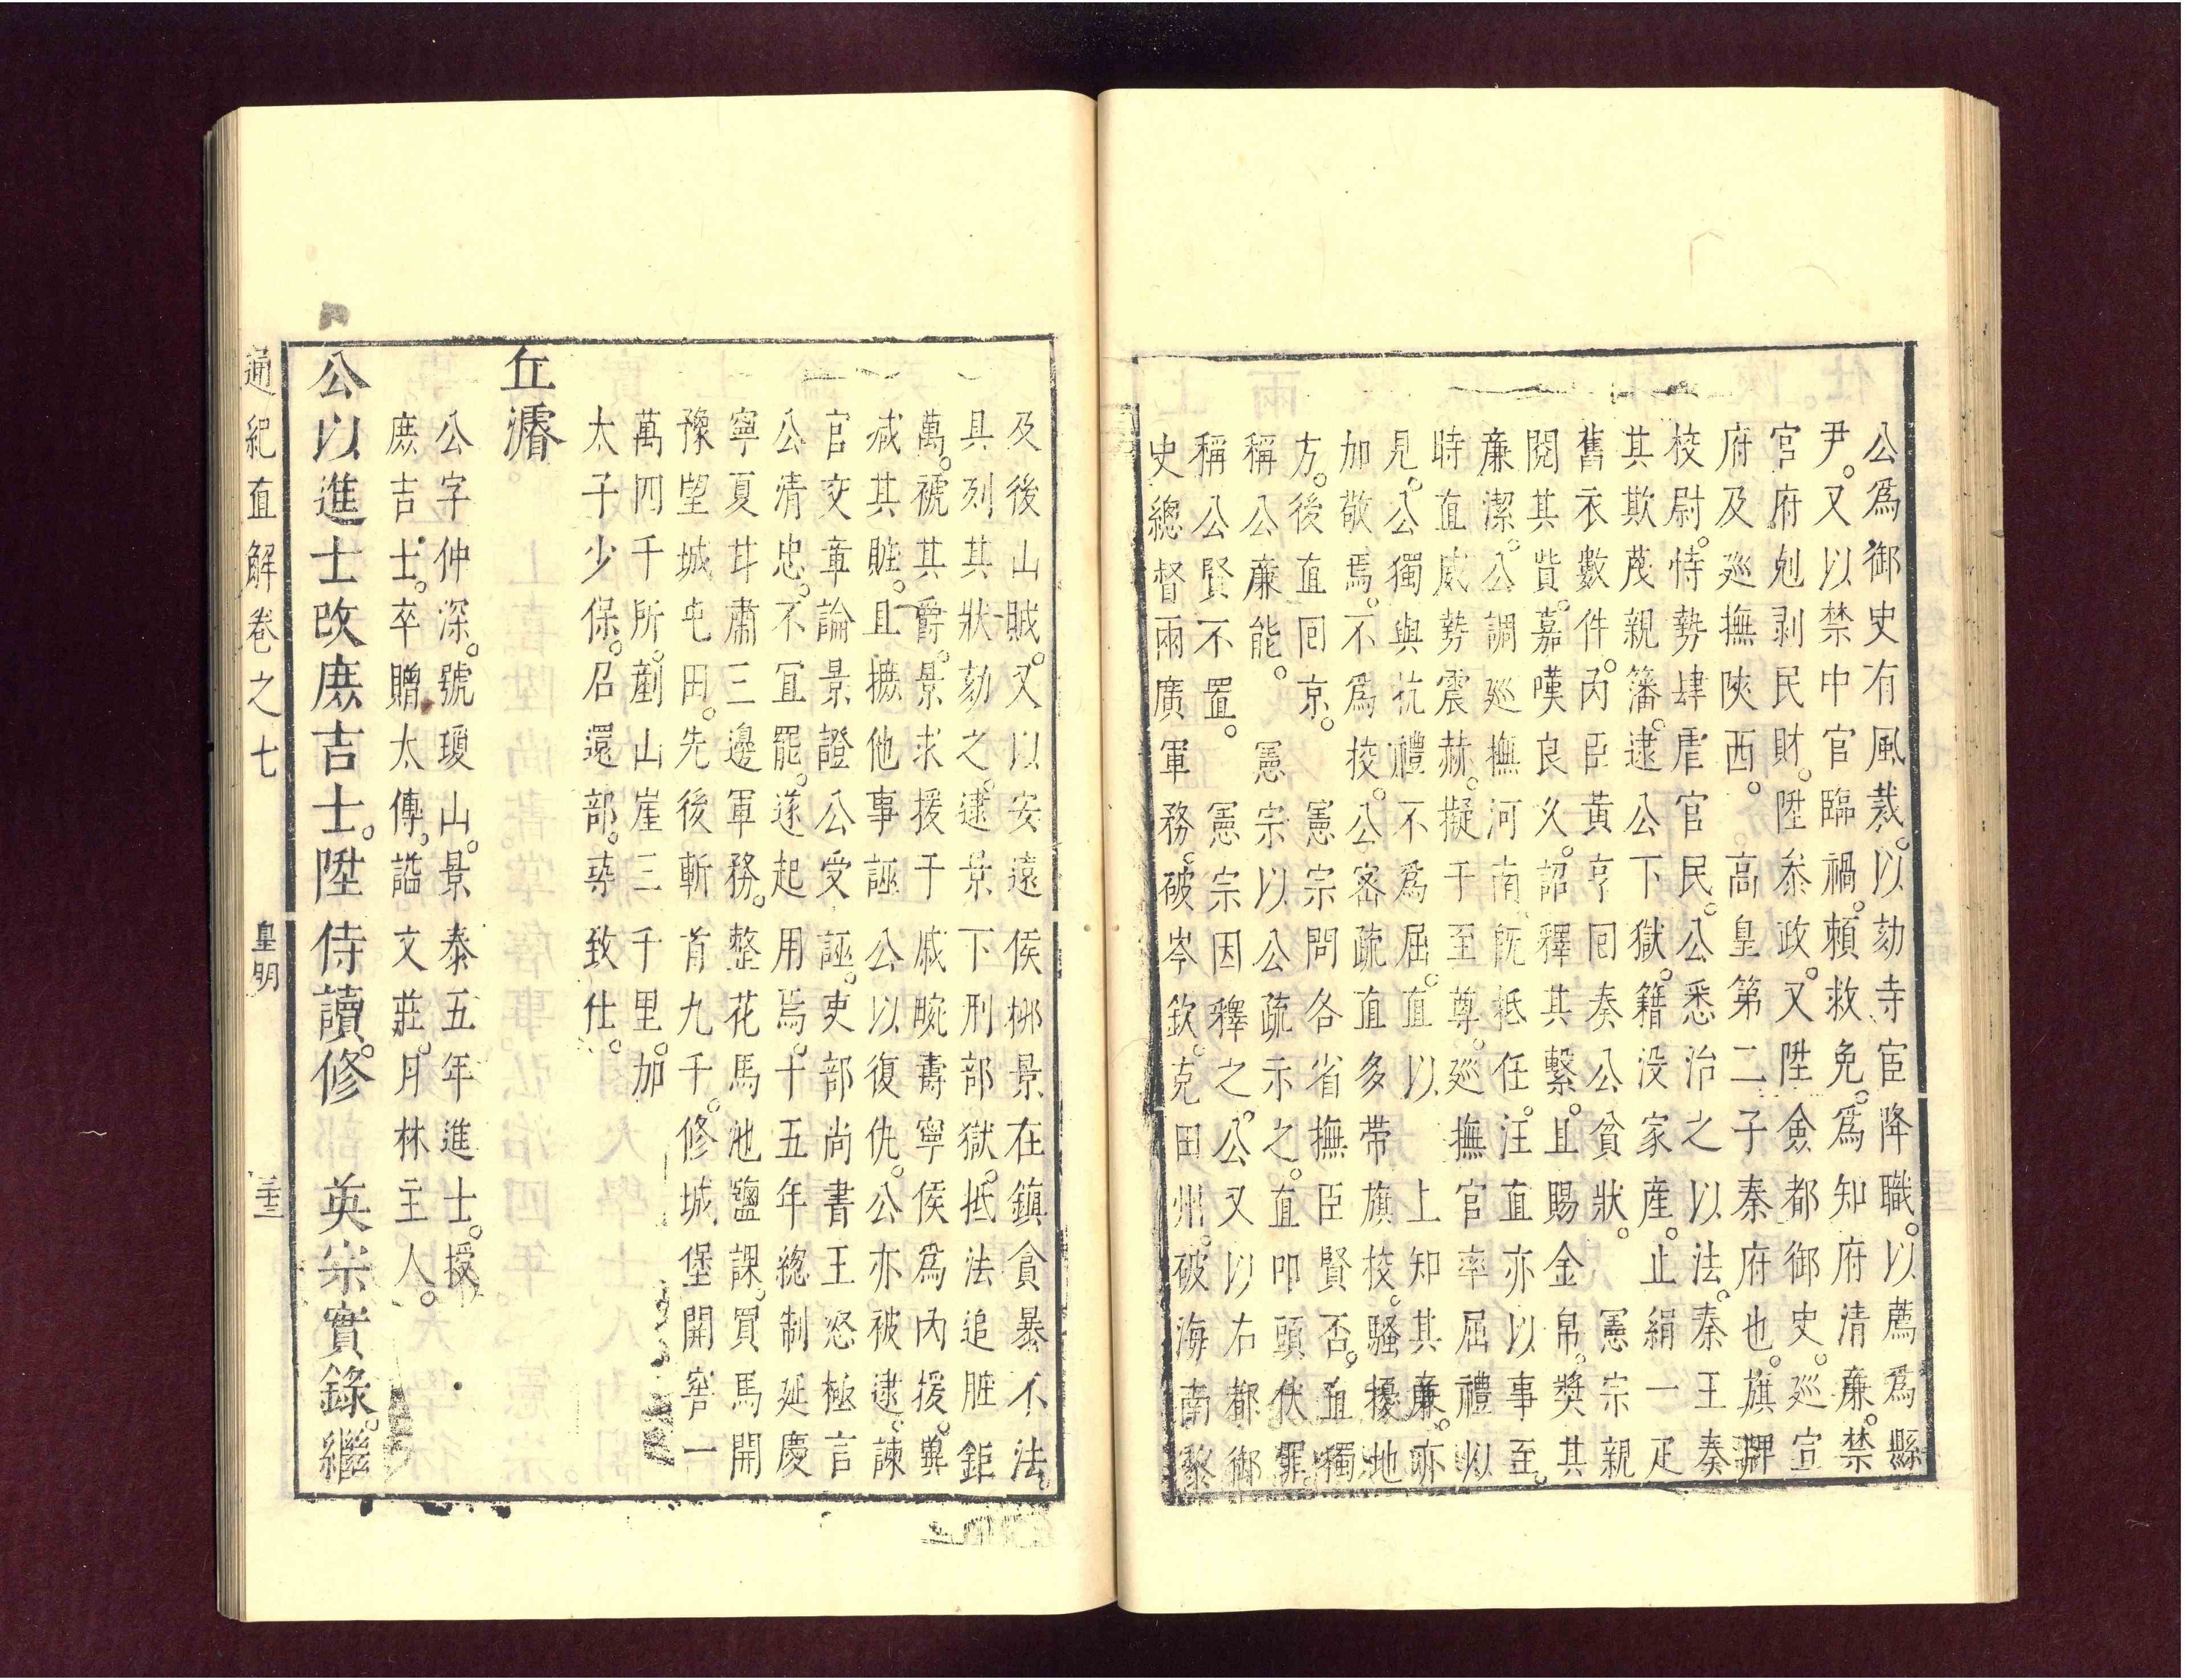 公爲御史有風裁。以劾寺宦降職。以薦爲縣
尹。又以禁中官臨禍。頼救免。爲知府清廉。禁
官府剋剥民財。陞叅政。又陞僉都御史。巡宣
府及廵撫陝西。 高皇第二子秦府也。旗牌
校尉。恃勢肆虐官民。公悉治之以法。秦王奏
其欺蔑親籓。逮公下獄。籍没家産。止絹一疋
舊衣數件。丙臣黃亨囘奏公貧狀。 憲宗親
閲其貲。嘉嘆良久。詔釋其繫。且賜金帛。奬其
廉潔。公調廵撫河南。旣抵任。汪直亦以事至。
時直威勢震赫。擬于至尊。廵撫官率屈禮以
見。公獨與抗禮不爲屈。直以 上知其廉。亦
加敬焉。不爲挍。公密疏直多帶旗校。騷擾地
方。後直囘京。 憲宗問各省撫臣賢否。直獨
稱公廉能。 憲宗以公疏示之。直叩頭伏罪
稱公賢不置。 憲宗因釋之。公又以右都御
史總督兩廣軍務。破岑欽。克田州。破海南黎
及後山賊。又以安遠侯栁景在鎮貪暴不法。
具列其狀劾之。逮景下刑部獄。抵法追賍鉅
萬。禠其爵。景求援于戚畹壽寧侯爲内援。兾
减其賍。且摭他事誣公以復仇。公亦被逮。諫
官交章論景證公受誣。吏部尚書王恕極言
公清忠。不宜罷。遂起用焉。十五年總制延慶
寧夏甘肅三邊軍務。整花馬池鹽課。買馬開
豫望城屯田。先後斬首九千。修城堡開窖一
萬四千所。剷山崖三千里。加
太子少保。召還部。尋致仕。
丘濬
公字仲深。號瓊山。景泰五年進士。授
庶吉士。卒贈太傅。謚文莊。月林主人。
公以進士改庶吉士。陞侍讀。修 英宗實錄。繼
通紀直解卷之七 皇明 三十三